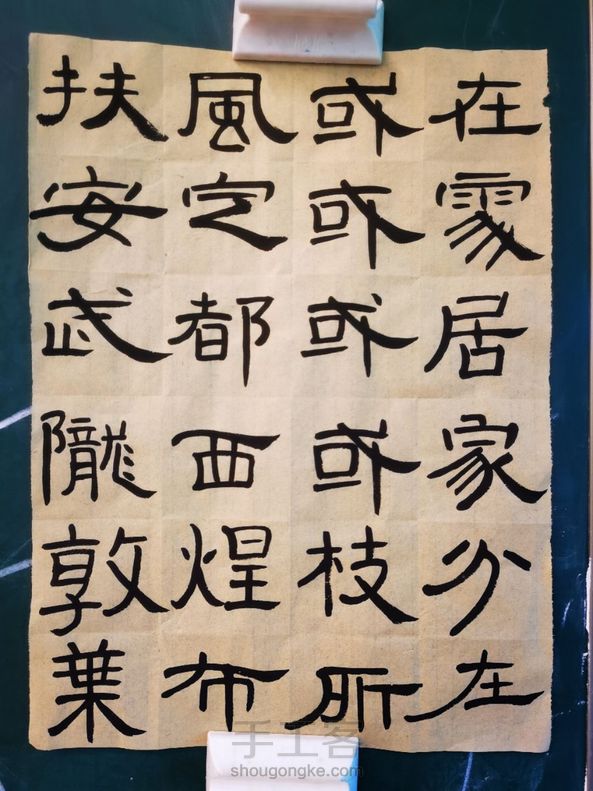 扶風或在
安定或處
武都或居
隴西或家
敦煌枝分
葉布所在
手工客
shougongke.com